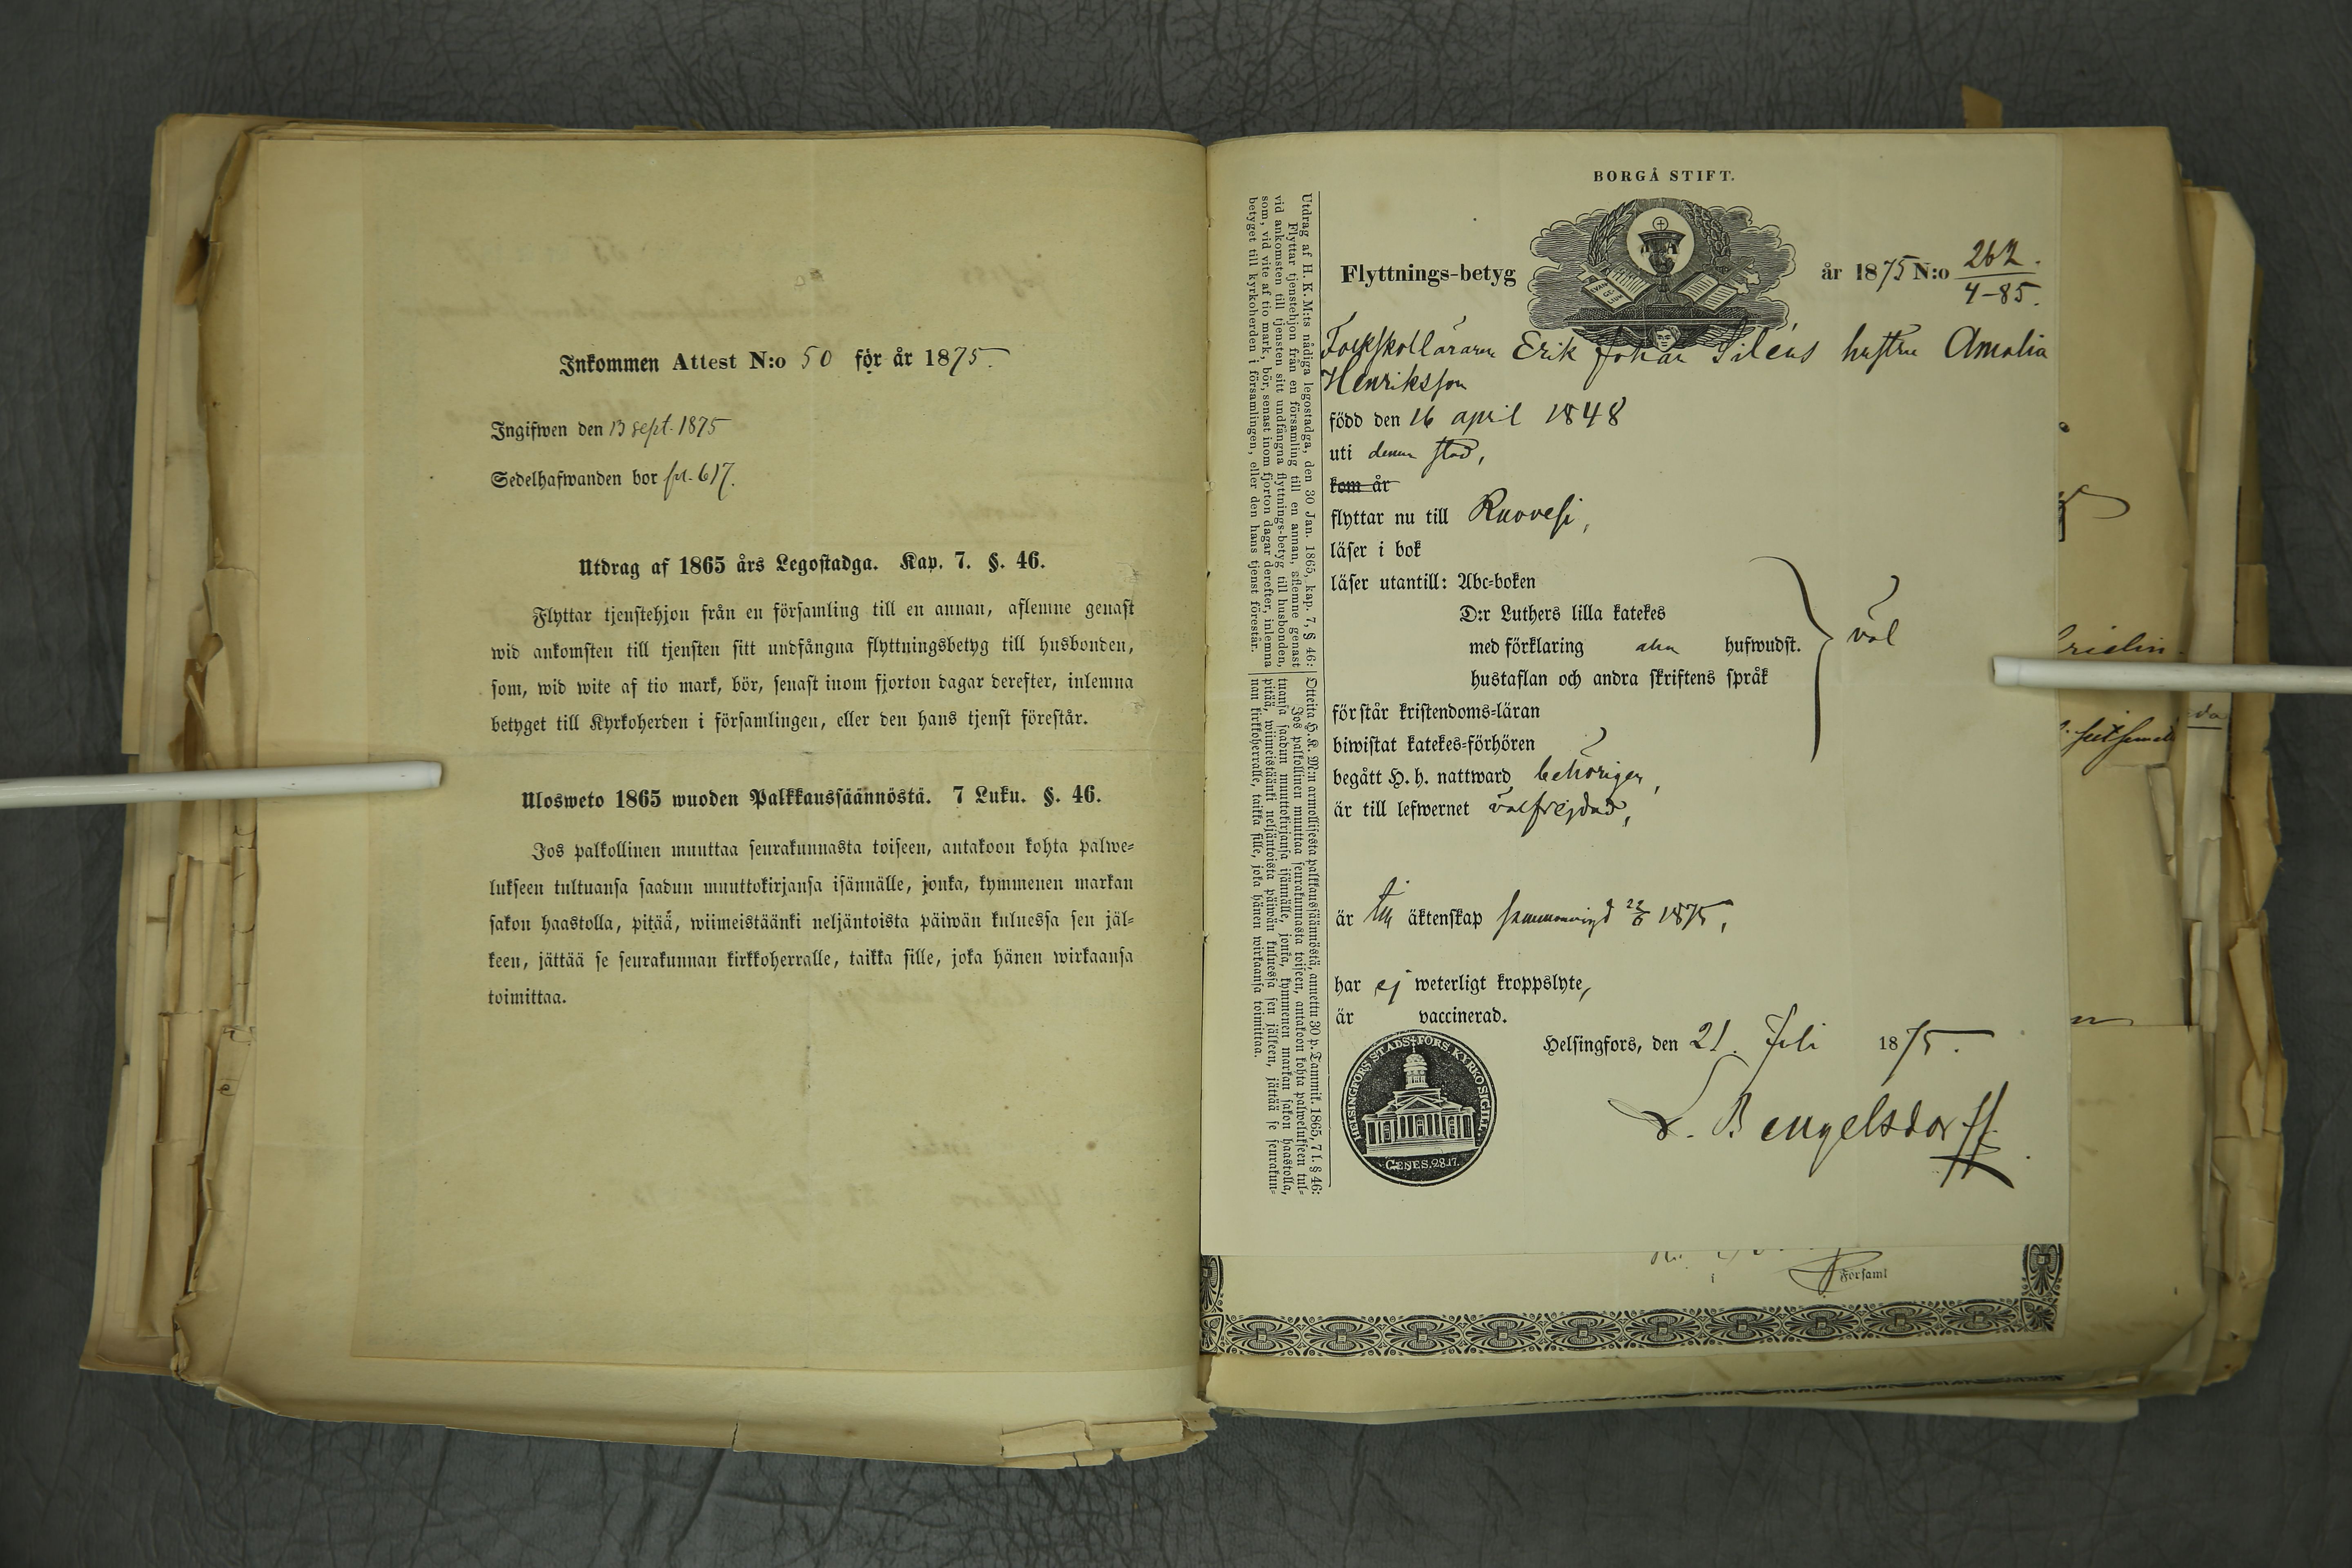 Inkommen Attest N:o 50 för år 1875.
Ingifwen den 13 sept. 1875
Sedelhafwanden bor fol. 617.
Utdrag af 1865 års Legostadga. Kap. 7. §. 46.
Flyttar tjenstehjon från en församling till en annan, aflemne genast
wid ankomsten till tjensten sitt undfångna flyttningsbetyg till husbonden,
som, wid wite af tio mark, bör, senast inom fjorton dagar derefter, inlemna
betyget till Kyrkoherden i församlingen, eller den hans tjenst förestår.
Ulosweto 1865 wuoden Palkkaussäännöstä. 7 Luku. §. 46.
Jos palkollinen muuttaa seurakunnasta toiseen, antakoon kohta palwe-
lukseen tultuansa saadun muuttokirjansa isännälle, jonka, kymmenen markan
sakon haastolla, pitää, wiimeistäänki neljäntoista päiwän kuluessa sen jäl-
keen, jättää se seurakunnan kirkkoherralle, taikka sille, joka hänen wirkaansa
toimittaa.
BORGÅ STIFT.
EVAN
GE-
LIUM
Flyttnings-betyg år 1875 N:o 262.
4-85.
Folkskolläraren Erik Johan Siléns hustru Amalia
Henriksson
född den 16 april 1848
uti denna stad,
kom år
flyttar nu till Ruovesi,
läser i bok
läser utantill: Abc-boken
D:r Luthers lilla katekes
med förklaring alla hufwudst. väl
hustaflan och andra skriftens språk
förstår kristendoms-läran
biwistat katekes-förhören
begått H. h. nattward behörigen,
är till lefwernet välfrejdad,
är till äktenskap sammanvigd 22/6 1875,
har ej weterligt kroppslyte,
är vaccinerad.
Helsingfors, den 21 Juli 1875.
L. Bengelsdorff
HELSINGFORS STADS FÖRS. KYRKO SIGILL.
GENES. 28.17.
Utdrag af H. K. M:ts nådiga legostadga, den 30 Jan. 1865, kap. 7, § 46:
Flyttar tjenstehjon från en församling till en annan, aflemne genast
vid ankomsten till tjensten sitt undfångna flyttnings-betyg till husbonden,
som, vid vite af tio mark, bör, senast inom fjorton dagar derefter, inlemna
betyget till kyrkoherden i församlingen, eller den hans tjenst förestår.
Otteita H. K. M:n armollisesta palkkaussäännöstä, annettu 30 p. Tammik. 1865, 7 l. § 46:
Jos palkollinen muuttaa seurakunnasta toiseen, antakoon kohta palwelukseen tul-
tuansa saadun muuttokirjansa isännälle, jonka, kymmenen markan sakon haastolla,
pitää, wiimeistäänki neljäntoista päiwän kuluessa sen jälkeen, jättää se seurakun-
nan kirkkoherralle, taikka sille, joka hänen wirkaansa toimittaa.
i Församl